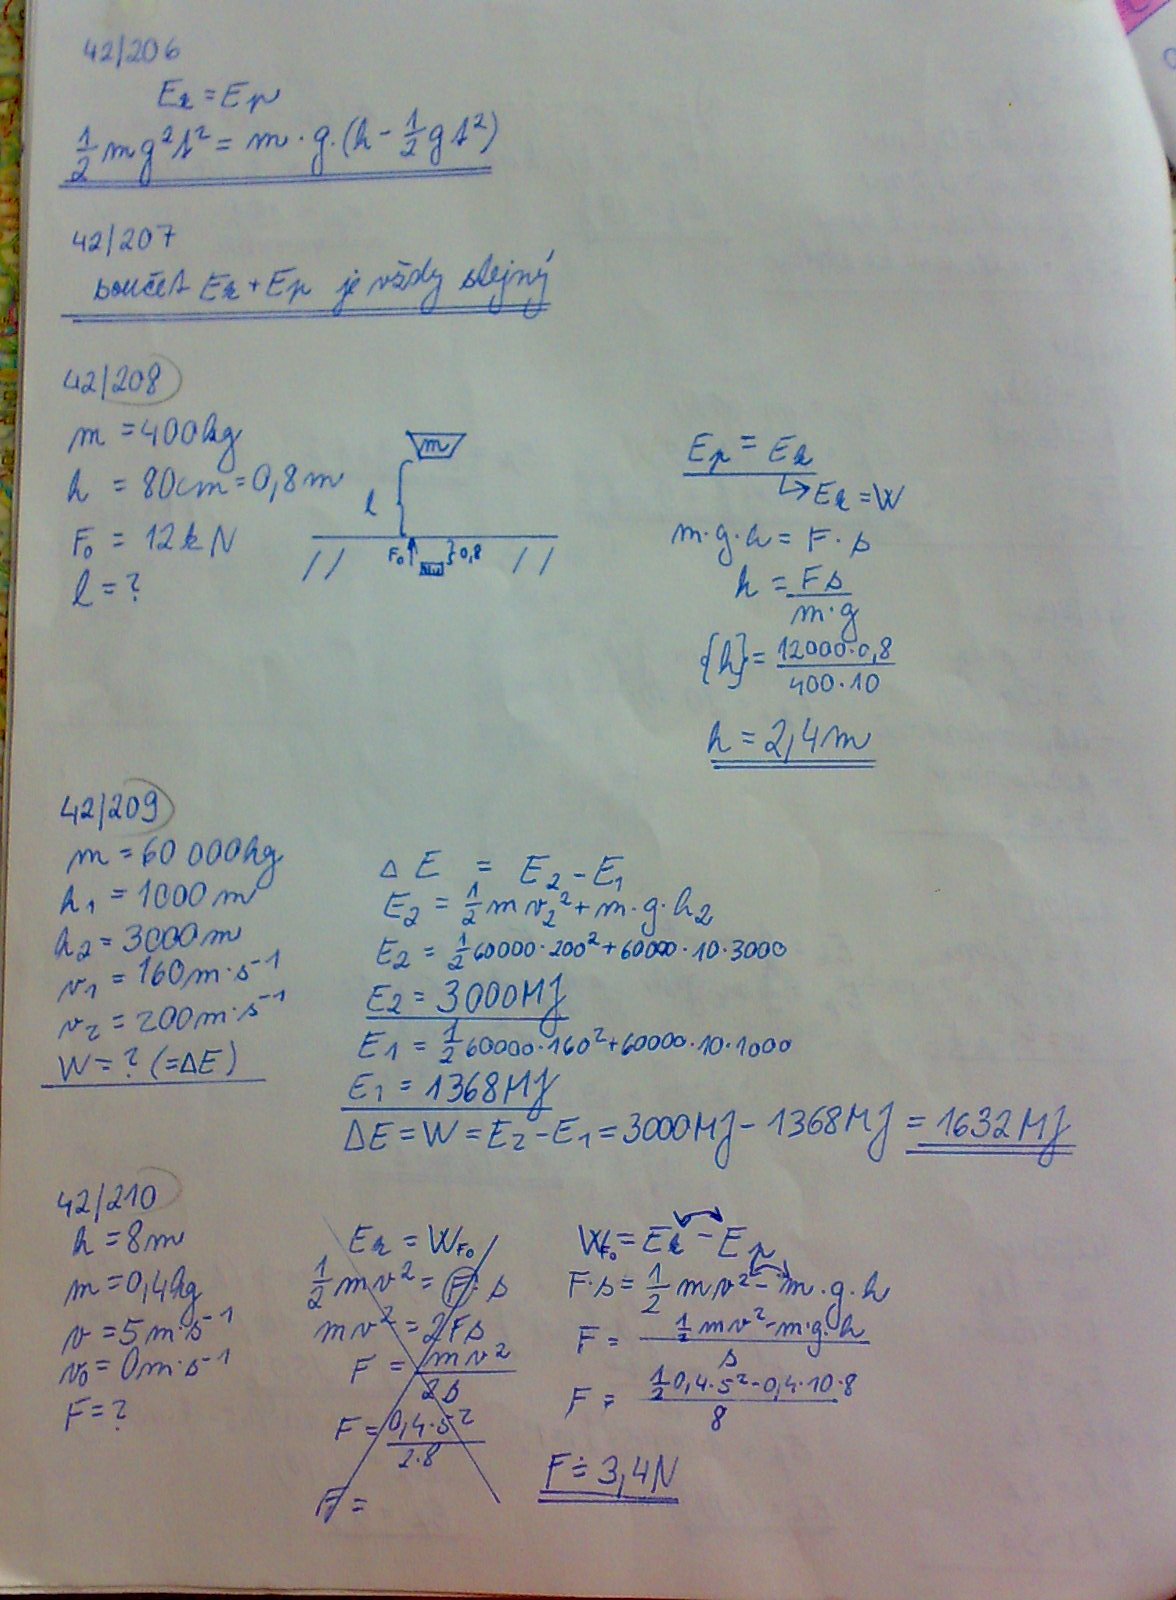 42/206
Ek = Ep
1/2 mg²t² = m·g·(h - 1/2 gt²)
42/207
součet Ek + Ep je vždy stejný
42/208
m = 400kg
h = 80cm = 0,8m
F₀ = 12kN
l = ?
m
l
F₀
0,8
Ep = Ek
↳ Ek = W
m·g·h = F·s
h = Fs / m·g
{h} = 12000·0,8 / 400·10
h = 2,4m
42/209
m = 60 000kg
h₁ = 1000m
h₂ = 3000m
v₁ = 160m·s⁻¹
v₂ = 200m·s⁻¹
W = ? (=ΔE)
ΔE = E₂ - E₁
E₂ = 1/2 mv₂² + m·g·h₂
E₂ = 1/2 60000·200² + 60000·10·3000
E₂ = 3000MJ
E₁ = 1/2 60000·160² + 60000·10·1000
E₁ = 1368MJ
ΔE = W = E₂ - E₁ = 3000MJ - 1368MJ = 1632MJ
42/210
h = 8m
m = 0,4kg
v = 5m·s⁻¹
v₀ = 0m·s⁻¹
F = ?
Ek = WF₀
1/2 mv² = F·s
mv² = 2Fs
F = mv² / 2s
F = 0,4·5² / 2·8
F =
WF₀ = Ek - Ep
F·s = 1/2 mv² - m·g·h
F = 1/2 mv² - m·g·h / s
F = 1/2 0,4·5² - 0,4·10·8 / 8
F ≐ 3,4N